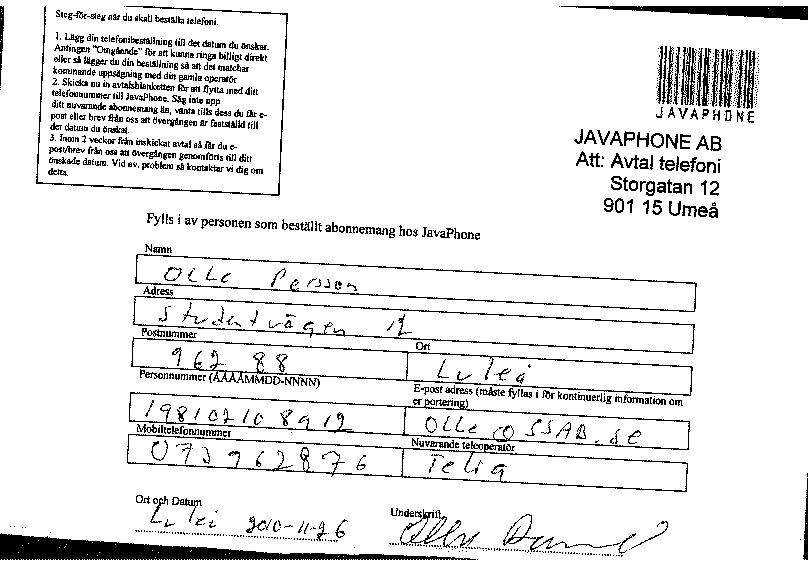 Steg-för-steg när du skall beställa telefoni.
1. Lägg din telefonibeställning till det datum du önskar.
Antingen "Omgående" för att kunna ringa billigt direkt
eller så lägger du din beställning så att det matchar
kommande uppsägning med din gamla operatör
2. Skicka nu in avtalsblanketten för att flytta med ditt
telefonnummer till JavaPhone. Säg inte upp
ditt nuvarande abonnemang än, vänta tills dess du får e-
post eller brev från oss att övergången är fastställd till
det datum du önskat.
3. Inom 2 veckor från inskickat avtal så får du e-
post/brev från oss att övergången genomförts till ditt
önskade datum. Vid ev. problem så kontaktar vi dig om
detta.
JAVAPHONE
JAVAPHONE AB
Att: Avtal telefoni
Storgatan 12
901 15 Umeå
Fylls i av personen som beställt abonnemang hos JavaPhone
Namn
Olle Persson
Adress
Studentvägen 12
Postnummer
Ort
962 88
Luleå
Personnummer (ÅÅÅÅMMDD-NNNN)
E-post adress (måste fyllas i för kontinuerlig information om
er portering)
198102108912
Olle@SSAB.se
Mobiltelefonnummer
Nuvarande teleoperatör
073962876
Telia
Ort och Datum
Underskrift
Luleå 2010-11-26
Olle